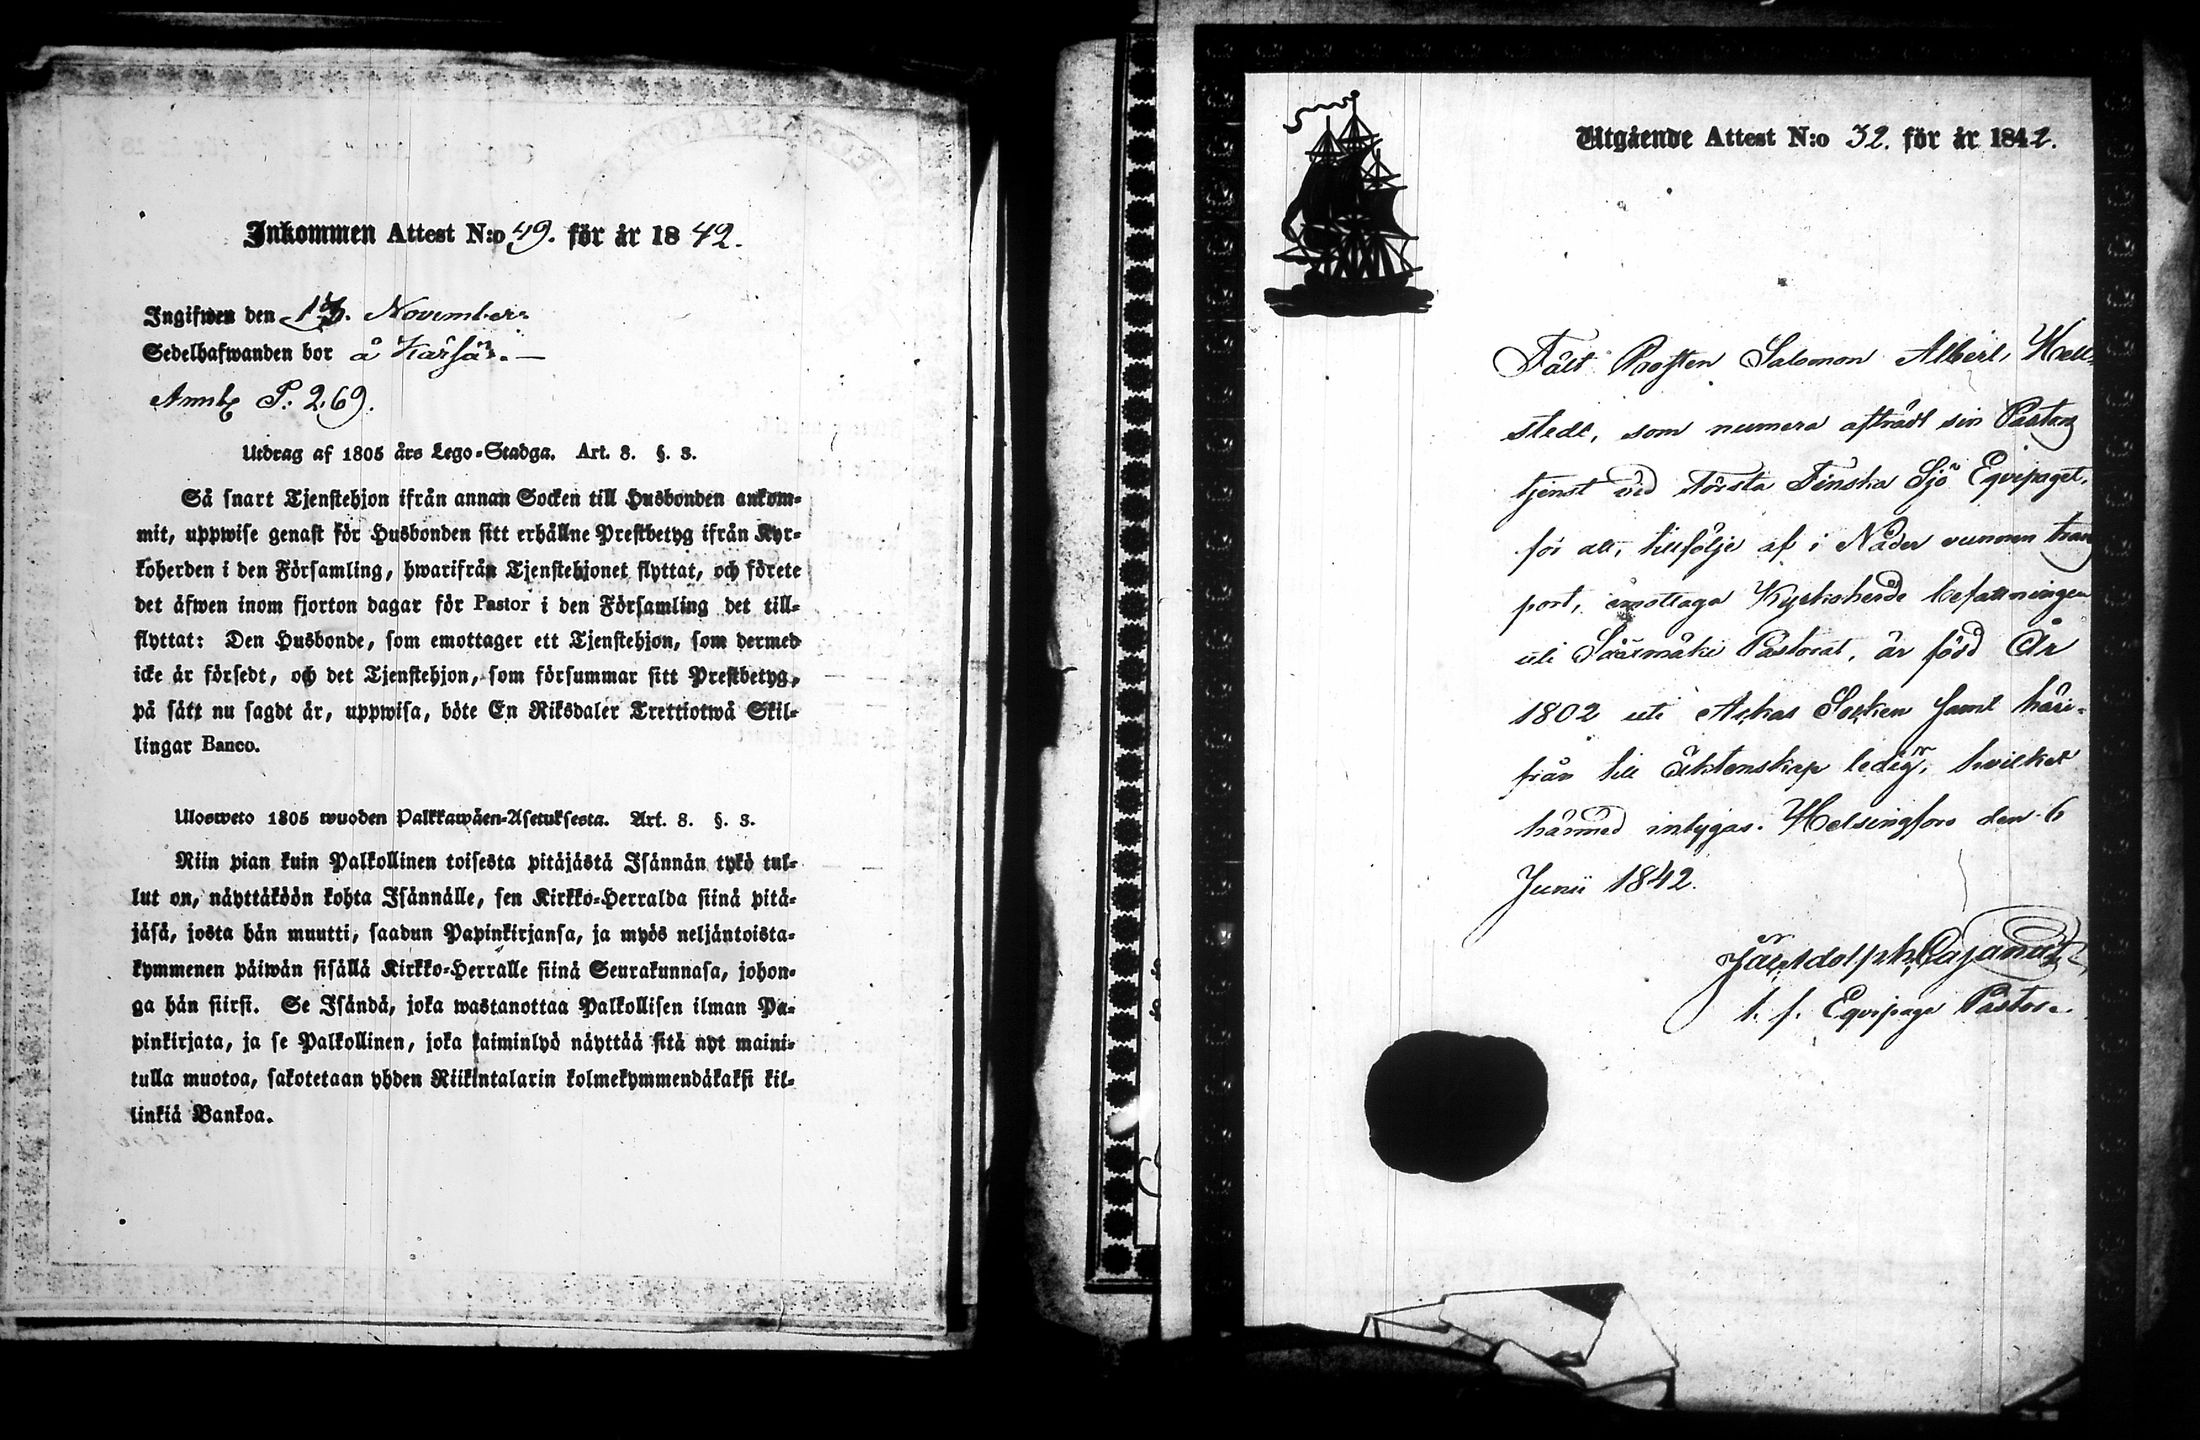 Inkommen Attest N:o 49. för år 1842.
Ingifwen den 13. November
Sedelhafwanden bor å Karsär. —
Annb P. 269.
Utdrag af 1805 års Lego-Stadga. Art. 8. §. 3.
Så snart Tjenstehjon ifrån annan Socken till Husbonden ankom-
mit, uppwise genast för Husbonden sitt erhållne Prestbetyg ifrån Kyr-
koherden i den Församling, hwarifrån Tjenstehjonet flyttat, och förete
det äfwen inom fjorton dagar för Pastor i den Församling det till-
flyttat: Den Husbonde, som emottager ett Tjenstehjon, som dermed
icke är försedt, och det Tjenstehjon, som försummar sitt Prestbetyg,
på sätt nu sagdt är, uppwisa, böte En Riksdaler Trettiotwå Skil-
lingar Banco.
Ulosweto 1805 wuoden Palkkawäen-Asetuksesta. Art. 8. §. 3.
Niin pian kuin Palkollinen toisesta pitäjästä Isännän tykö tul-
lut on, näyttäköön kohta Isännälle, sen Kirkko-Herralda siinä pitä-
jäsä, josta hän muutti, saadun Papinkirjansa, ja myös neljäntoista-
kymmenen päiwän sisällä Kirkko-Herralle siinä Seurakunnasa, johon-
ga hän siirsi. Se Isändä, joka wastanottaa Palkollisen ilman Pa-
pinkirjata, ja se Palkollinen, joka laiminlyö näyttää sitä nyt maini-
tulla muotoa, sakotetaan yhden Riikintalarin kolmekymmendäkaksi kil-
linkiä Bankoa.
Utgående Attest N:o 32. för år 1842.
Fält Prosten Salomon Albert Hell-
stedt, som numera afträdt sin Pastors
tjenst vid Första Finska Sjö Eqvipaget,
för att, tillfölje af i Nåder vunnen trans
port, emottaga Kyrkoherde befattningen
uti Säräsmäki Pastorat, är född År
1802 uti Askas Socken samt häri-
från till äktenskap ledig, hvilket
härmed intygas. Helsingfors den 6
Junii 1842.
Adolph Cajanus
t. f. Eqvipage Pastor.